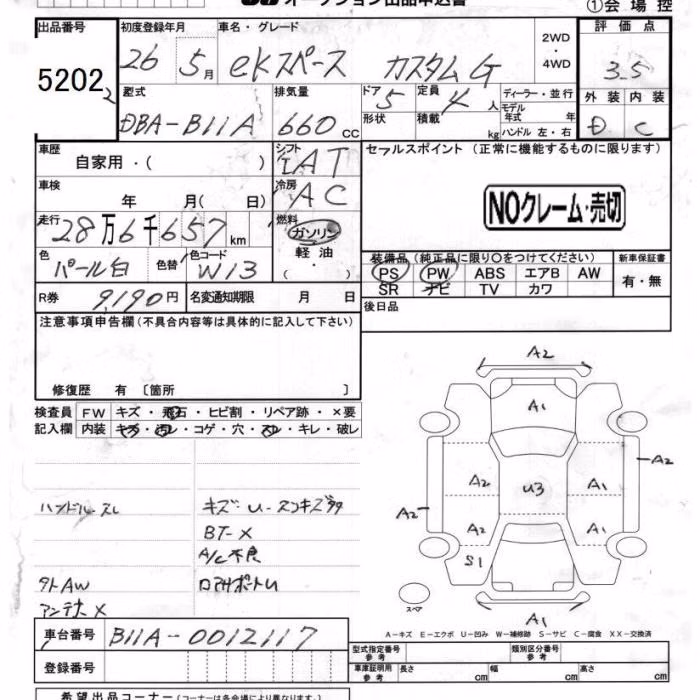 オークション出品申込書
①会場控
出品番号 5202
初度登録年月 26 5月
車名・グレード eKスペース カスタムG
2WD・4WD
評価点 3.5
外装 内装
D C
型式 DBA-B11A
排気量 660cc
ドア 5 定員 4人
形状 積載 kg
ディーラー・並行
モデル年式 年式
ハンドル 左・右
車歴 自家用・( )
シフト IAT
セールスポイント (正常に機能するものに限ります)
車検 年 月( 日)
冷房 AC
NOクレーム・売切
走行 28万6千657km
燃料 ガソリン 軽油 ・( )
色 パール白 色替 色コード W13
装備品(純正品に限り○をつけてください) 新車保証書
PS PW ABS エアB AW 有・無
SR ナビ TV カワ
R券 9,190円 名変通知期限 月 日
後日品
注意事項申告欄(不具合内容等は具体的に記入して下さい)
修復歴 有 〔箇所 〕
検査員 FW キズ・飛石・ヒビ割・リペア跡・×要
記入欄 内装 キズ・汚レ・コゲ・穴・スレ・キレ・破レ
ハンドルスレ
キズ・U・スンキズ多々
BT-X
A/C不良
外AW
アンテナX
A2
A1
A2
A2
U3
A1
A2
A2
A1
S1
スペア
A1
A-キズ E-エクボ U-凹み W-補修跡 S-サビ C-腐食 XX-交換済
車台番号 B11A-0012117
型式指定番号 参考 類別区分番号 参考
登録番号
車庫証明用 参考 長さ cm 幅 cm 高さ cm
希望出品コーナー(コーナーは各会場により異なります)